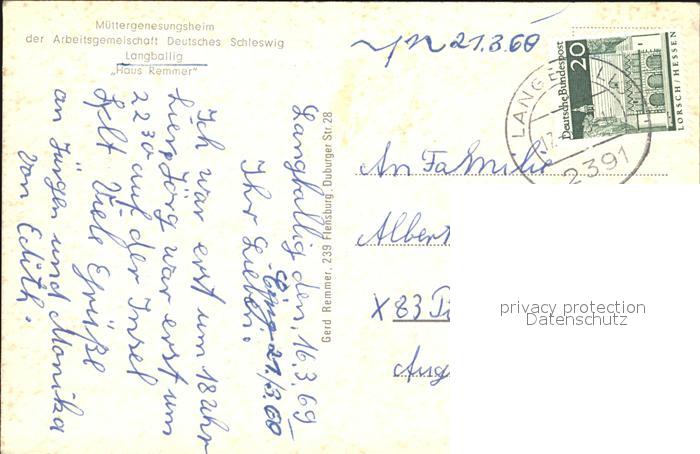 Müttergenesungsheim
der Arbeitsgemeinschaft Deutsches Schleswig
Langballig
„Haus Remmer"
21.3.60
Deutsche Bundespost
20
LORSCH/HESSEN
LANGBALLIG
17.
2391
Langballig den, 16.3.69
Ihr Lieben.
Eing. 21/3.60
Ich war erst um 18 Uhr
hier, Jörg war erst um
22 30 auf der Insel
Sylt. Viele Grüße
an Jürgen und Monika
von Edith.
Gerd Remmer, 239 Flensburg, Duburger Str. 28
An Familie
Albert
X 83 Pi
Aug
privacy protection
Datenschutz